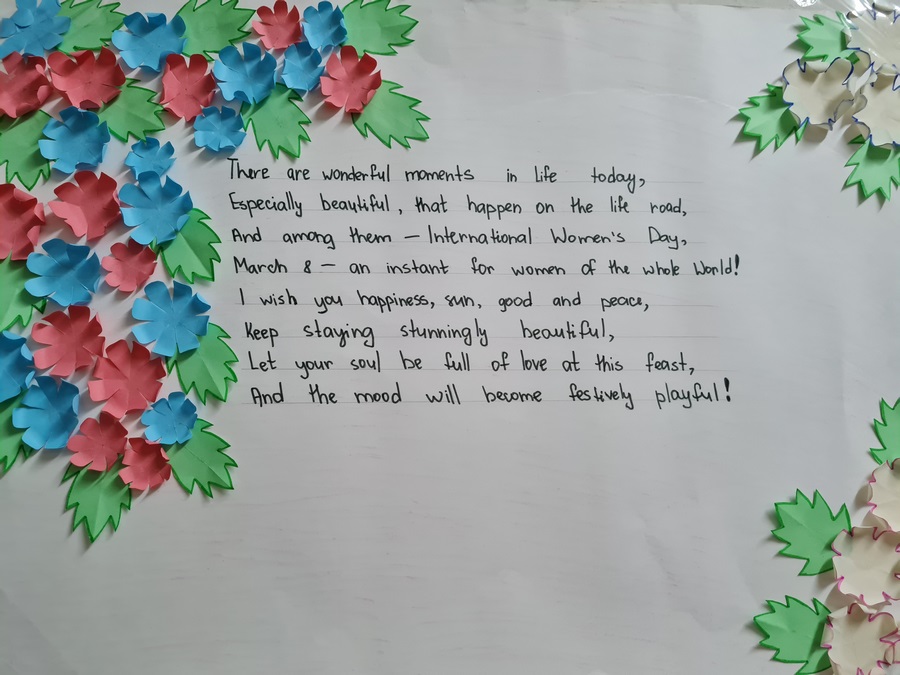 There are wonderful moments in life today,
Especially beautiful, that happen on the life road,
And among them – International Women's Day,
March 8 – an instant for women of the whole World!
I wish you happiness, sun, good and peace,
Keep staying stunningly beautiful,
Let your soul be full of love at this feast,
And the mood will become festively playful!